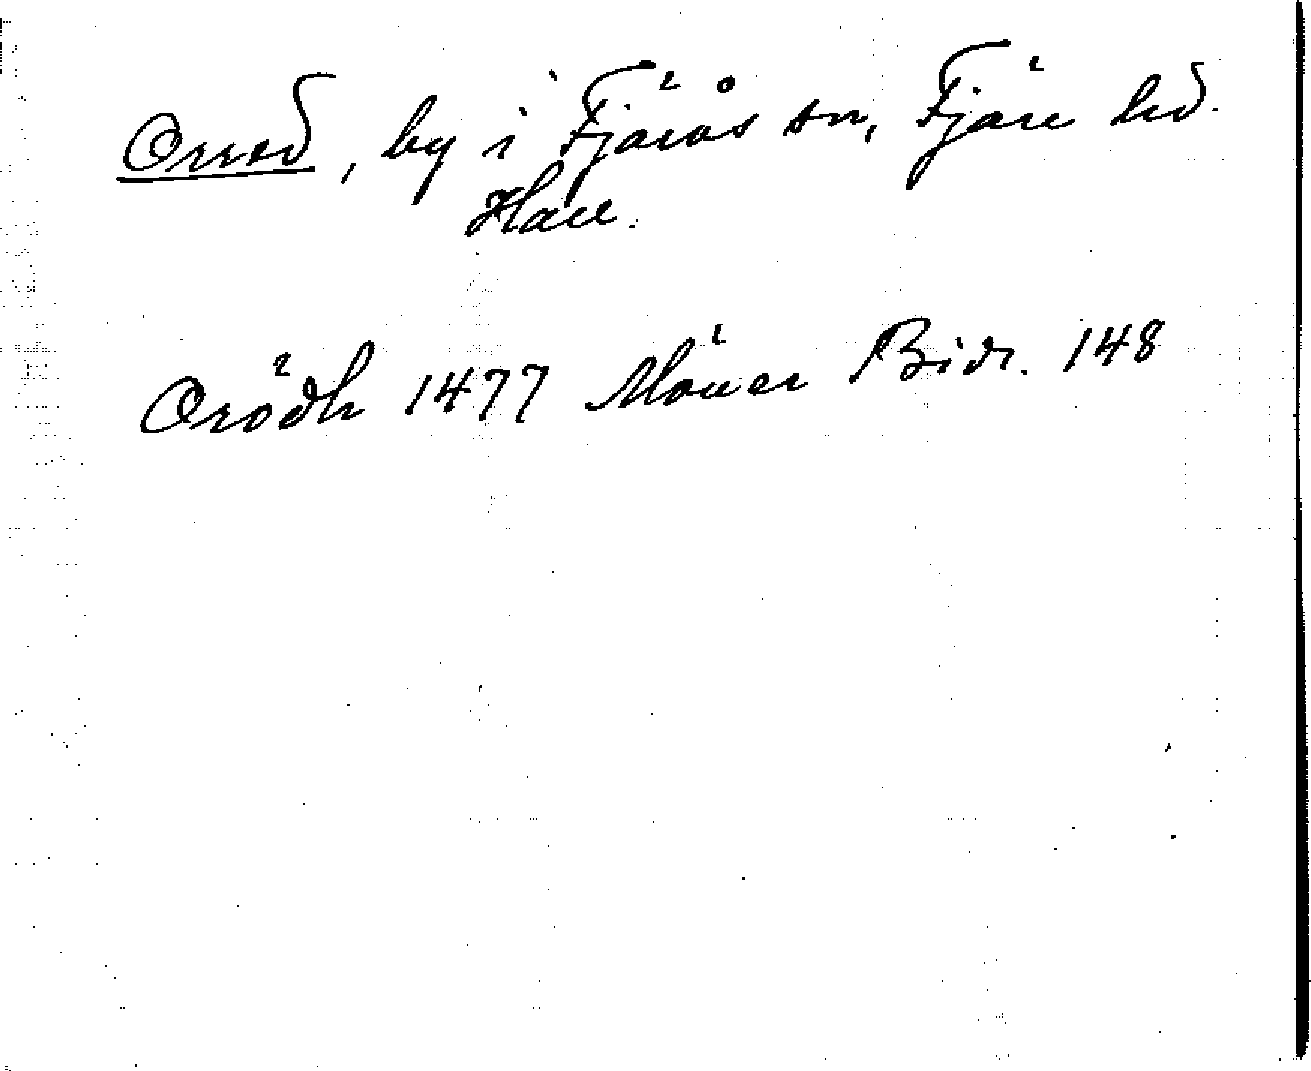 Orred, by i Fjärås sn, Fjäre hd.
Hall.
Orödh 1477 Möller Bidr. 148